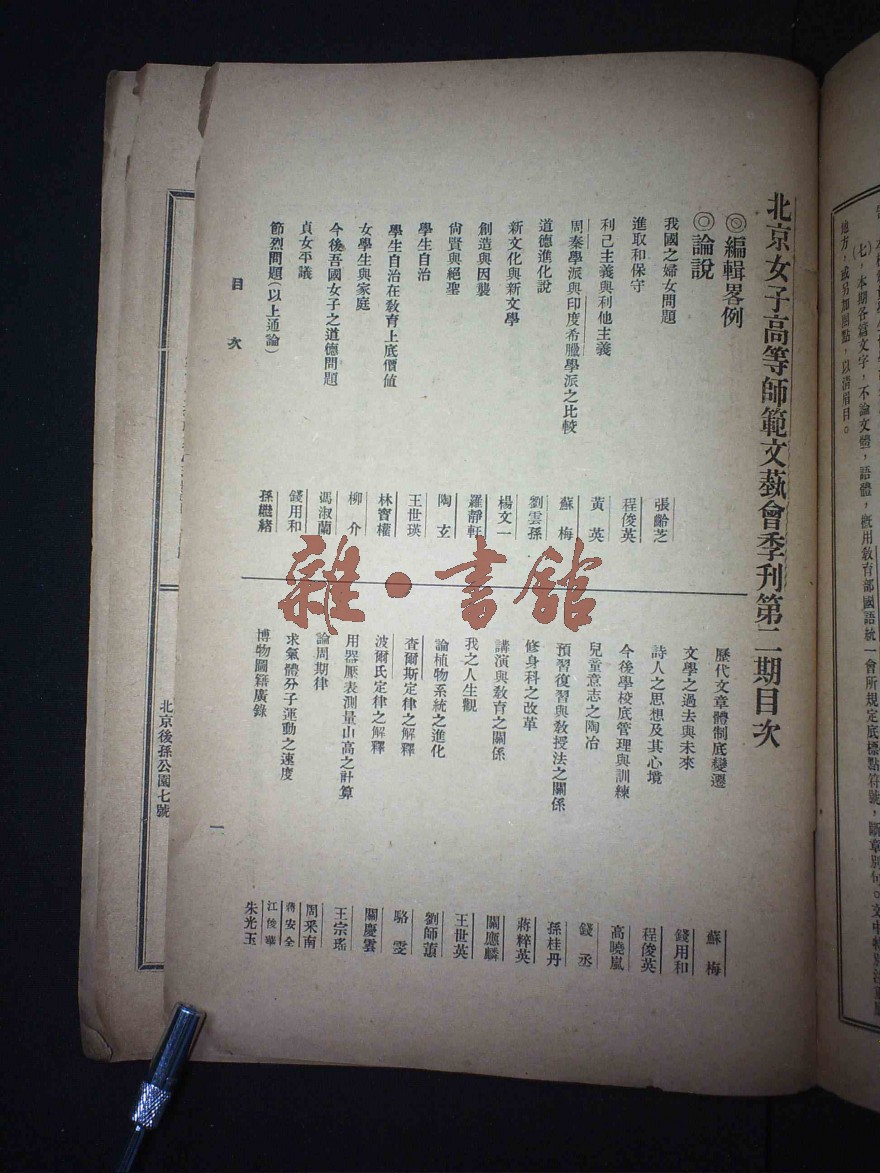 七，本期各篇文字，不論文體，語體，概用教育部國語統一會所規定底標點符號，斷章別句。文中特別注重底
地方，或另加圈點，以清眉目。
北京女子高等師範文藝會季刊第二期目次
◎編輯畧例
◎論說
我國之婦女問題　張齡芝
進取和保守　程俊英
利己主義與利他主義　黃英
周秦學派與印度希臘學派之比較　蘇梅
道德進化說　劉雲孫
新文化與新文學　楊文一
創造與因襲　羅靜軒
尚賢與絕聖　陶玄
學生自治　王世瑛
學生自治在教育上底價値　林寶權
女學生與家庭　柳介
今後吾國女子之道德問題　馮淑蘭
貞女平議　錢用和
節烈問題(以上通論)　孫繼緒
歷代文章體制底變遷　蘇梅
文學之過去與未來　錢用和
詩人之思想及其心境　程俊英
今後學校底管理與訓練　高曉嵐
兒童意志之陶冶　錢丞
預習復習與教授法之關係　孫桂丹
修身科之改革　蔣粹英
講演與教育之關係　關應麟
我之人生觀　王世英
論植物系統之進化　劉師蕙
查爾斯定律之解釋　駱雯
波爾氏定律之解釋　關慶雲
用器壓表測量山高之計算　王宗瑤
論周期律　周釆南
求氣體分子運動之速度　蔣安全　江俊華
博物圖籍廣錄　朱光玉
目次
一
北京後孫公園七號
雜·書館